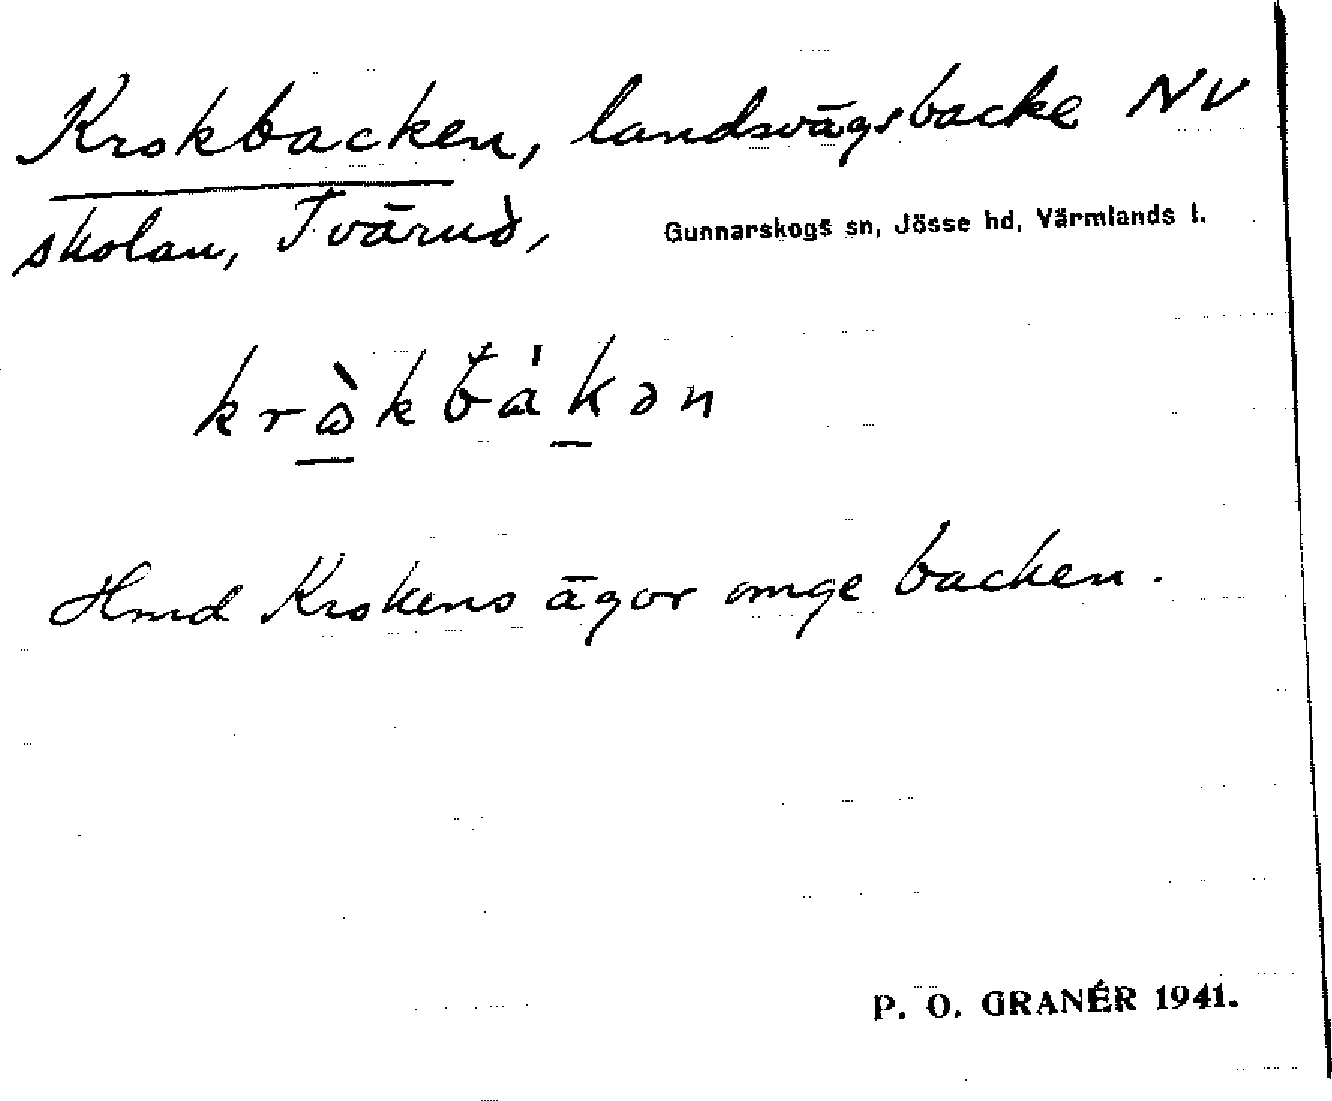 Krokbacken, landsvägsbacke NV
skolan, Tvärud, Gunnarskogs sn, Jösse hd, Värmlands l.
kràkbákən
Hmd Krokens ägor omge backen.
P. O. GRANÉR 1941.